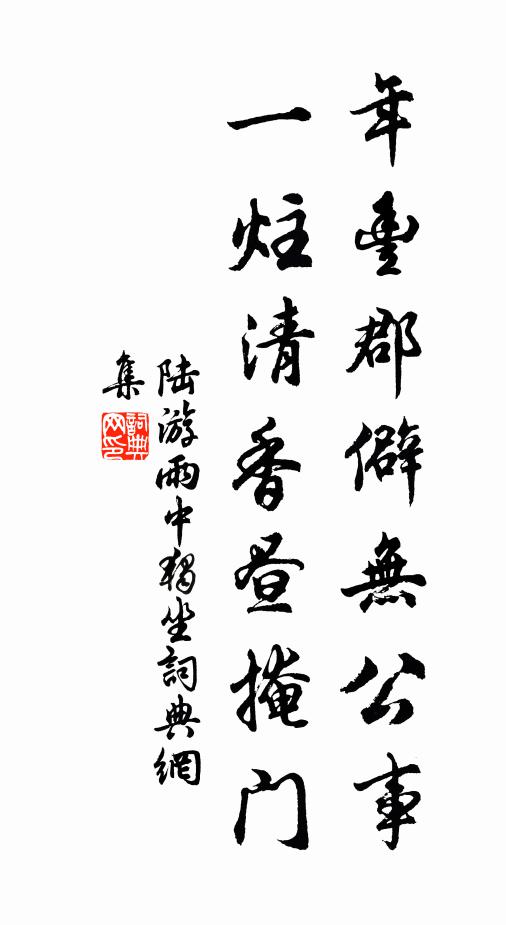 年豐郡僻無公事
一炷清香昼掩门
陆游雨中獨坐詞典網
集
詞典
网印